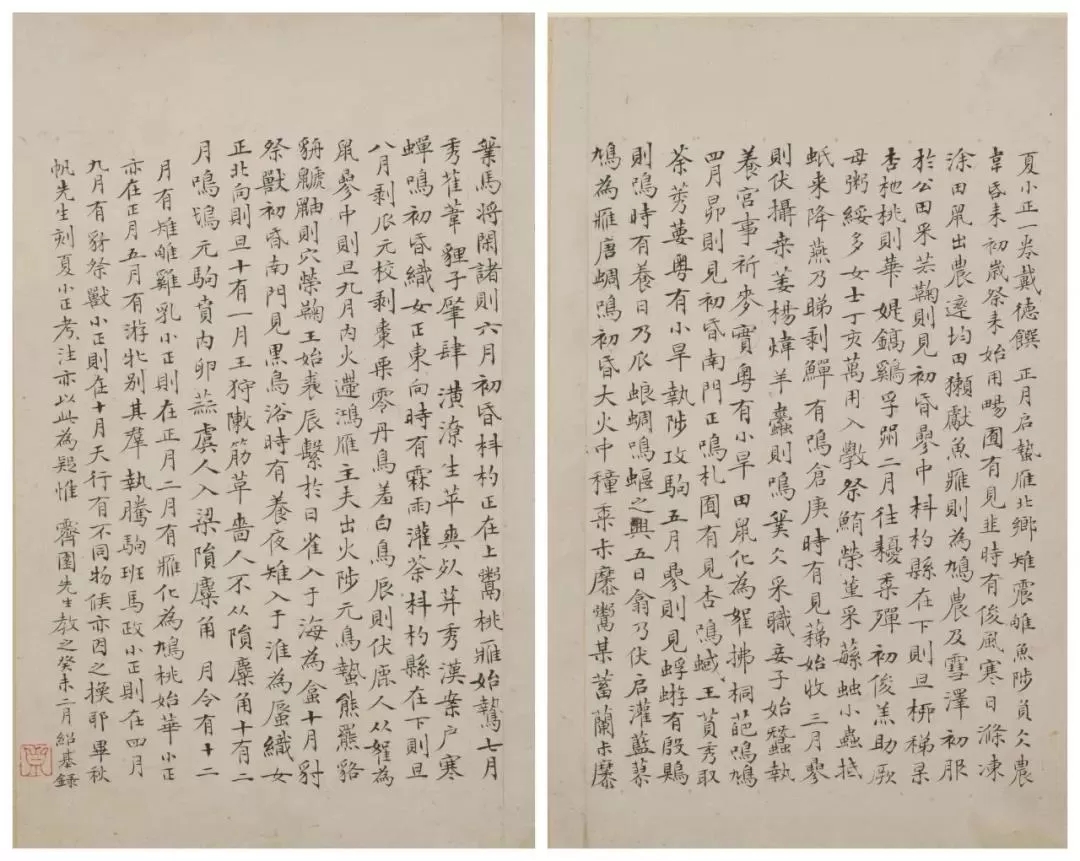 夏小正一卷戴德饌 正月启蟄雁北鄉雉震雊魚陟負仌農
韋昏耒初歲祭耒始用畼囿有見韭時有俊風寒日滌凍
涂田鼠出農逩均田獺獻魚雁則為鳩農及雪澤初服
於公田采芸鞠則見初昏參中枓杓縣在下則旦桺稊某
杏杝桃則華媞鎬鷄孚粥二月往耰黍殫初俊羔助厥
母粥綏多女士丁亥萬用入敩祭鮪榮堇采蘩蜮小蟲抵
蚔来降燕乃睇剥鱓有鳴倉庚時有見藡始收三月參
則伏攝桒萎楊煒羊蠡則鳴㷼仌采職妾子始蠶執
養宫事祈麥實粤有小旱田鼠化為鴽拂桐葩鳴鳩
四月昴則見初昏南門正鳴札囿有見杏鳴蜮王萯秀取
荼莠葽粤有小旱執陟攻駒五月參則見蜉蝣有殷鴂
則鳴時有養日乃瓜蜋蜩鳴蝘之興五日翕乃伏启灌藍蓼
鳩為雁唐蜩鳴初昏大火中種黍尗糜鬻某蓄蘭尗糜
棻馬將閑諸則六月初昏枓杓正在上鬻桃雁始鷙七月
秀萑葦貍子肇肆潢潦生苹爽以莽秀漢案户寒
蟬鳴初昏織女正東向時有霖雨灌荼枓杓縣在下則旦
八月剥瓜元校剥棗栗零丹鳥羞白鳥辰則伏鹿人从鴽為
鼠參中則旦九月内火遰鴻雁主夫出火陟元鳥蟄熊羆貉
貈鼶鼬則穴榮鞠王始裘辰繫於日雀入于海為盒十月豺
祭獸初昏南門見黑鳥浴時有養夜雉入于淮為蜃織女
正北向則旦十有一月王狩敶筋革嗇人不从隕麋角十有二
月鳴鳴元駒賁内卵蒜虞人入梁隕麋角 月令有十二
月有雉雊雞乳小正則在正月二月有雁化為鳩桃始華小正
亦在正月五月有游牝别其羣執騰駒班馬政小正則在四月
九月有豺祭獸小正則在十月天行有不同物候亦因之換耶畢秋
帆先生刻夏小正考注亦以此為疑惟 霽園先生教之癸未二月紹基録